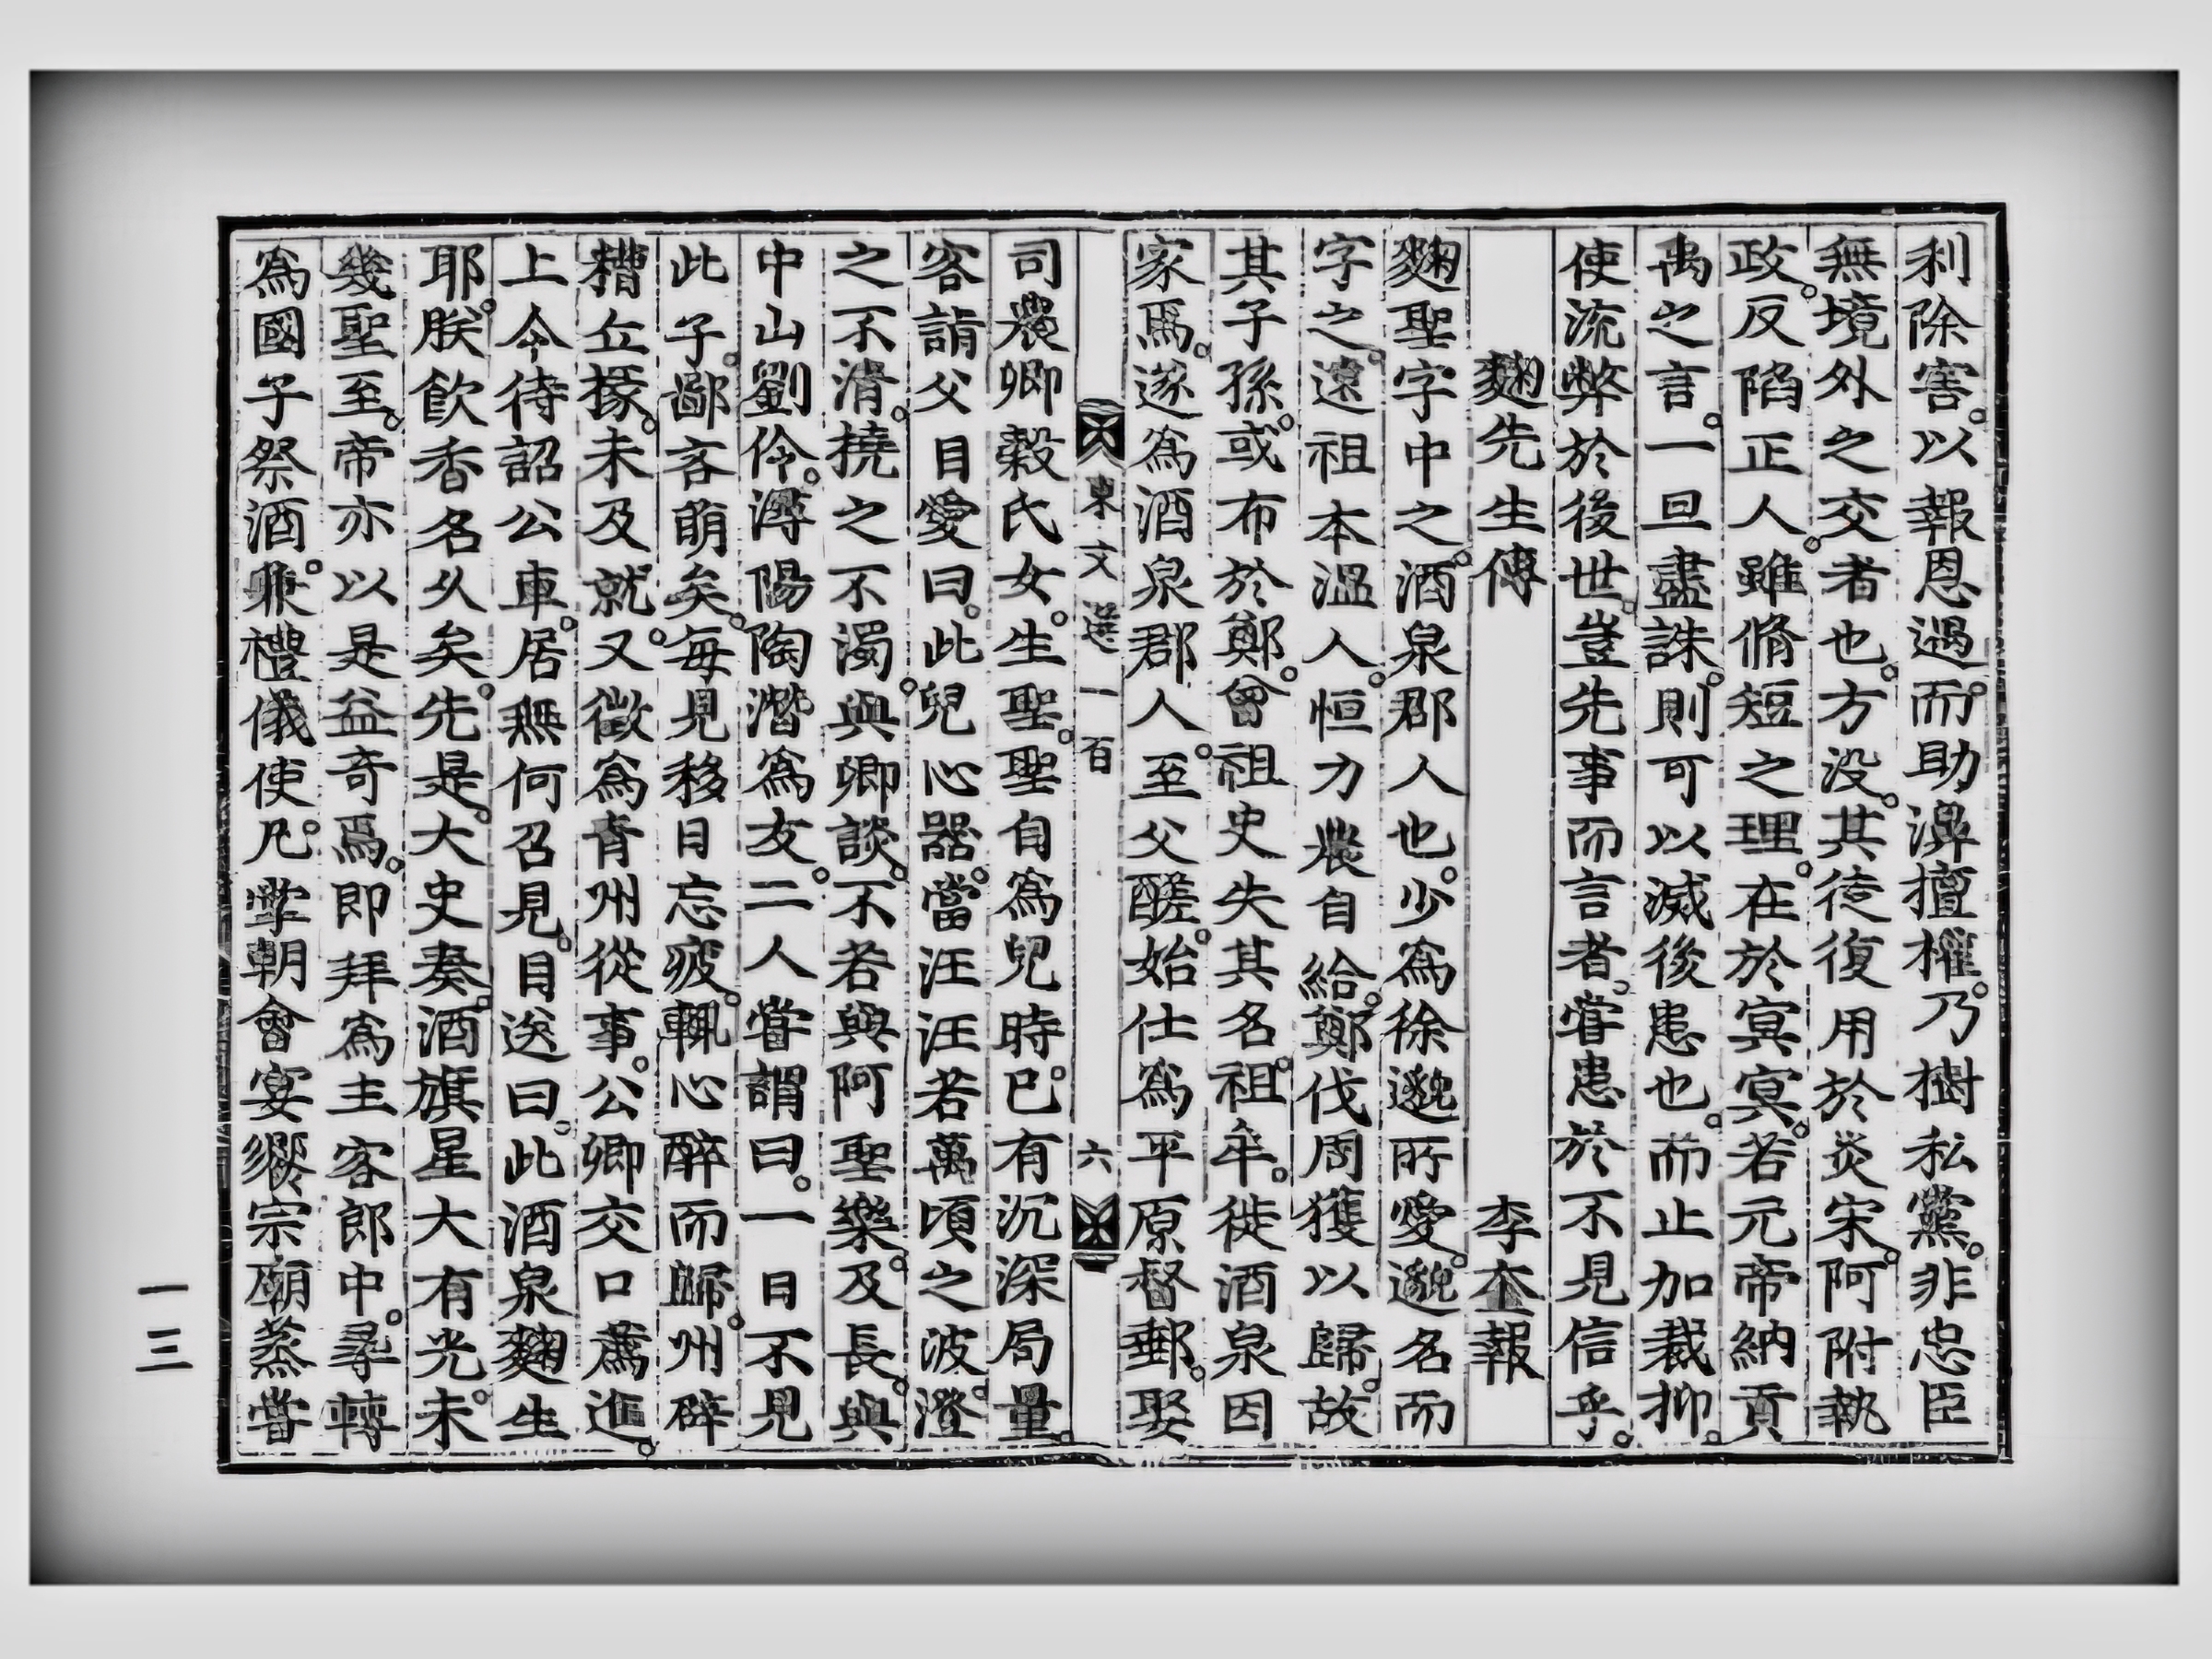 利除害。以報恩遇。而助濞擅權。乃樹私黨。非忠臣
無境外之交者也。方没。其徒復用於炎宋。阿附執
政。反陷正人。雖脩短之理。在於冥冥。若元帝納貢
禹之言。一旦盡誅。則可以滅後患也。而止加裁抑。
使流弊於後世。豈先事而言者。嘗患於不見信乎。
麴先生傳 李奎報
麴聖字中之。酒泉郡人也。少爲徐邈所愛。邈名而
字之。遠祖本溫人。恒力農自給。鄭伐周獲以歸。故
其子孫。或布於鄭。曾祖史失其名。祖牟。徙酒泉因
家焉。遂爲酒泉郡人。至父醝。始仕爲平原督郵。娶
東文選一百 六
司農卿穀氏女。生聖。聖自爲兒時。已有沉深局量。
客詣父目愛曰。此兒心器。當汪汪若萬頃之波。澄
之不淸。撓之不濁。與卿談。不若與阿聖樂。及長。與
中山劉伶。潯陽陶潛爲友。二人嘗謂曰。一日不見
此子。鄙吝萌矣。每見移日忘疲。輒心醉而歸。州辟
糟丘掾。未及就。又徵爲靑州從事。公卿交口薦進。
上令待詔公車。居無何召見。目送曰。此酒泉麴生
耶。朕飮香名久矣。先是。大史奏。酒旗星大有光。未
幾聖至。帝亦以是益奇焉。即拜爲主客郎中。尋轉
爲國子祭酒。兼禮儀使。凡掌朝會宴饗宗廟蒸嘗
一三